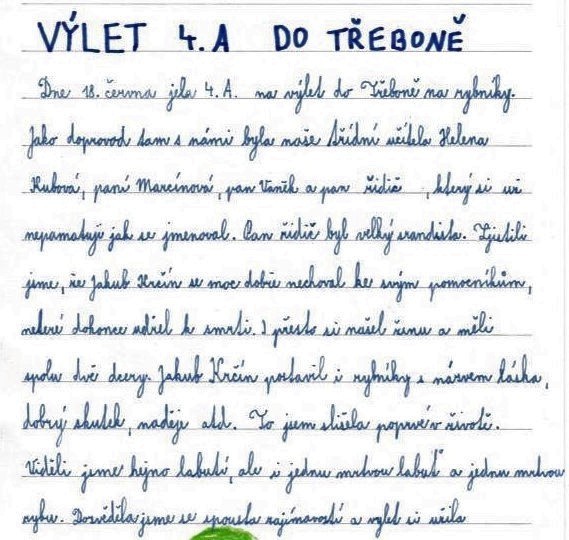 VÝLET 4. A DO TŘEBONĚ
Dne 18. června jela 4. A. na výlet do Třeboně na rybníky.
Jako doprovod tam s námi byla naše třídní učitela Helena
Kubová, paní Marcínová, pan Vaněk a pan řidič, který si už
nepamatuji jak se jmenoval. Pan řidič byl velký srandista. Zjistili
jsme, že Jakub Krčín se moc dobře nechoval ke svým pomocníkům,
neteré dokonce udřel k smrti. I přesto si našel ženu a měli
spolu dvě dcery. Jakub Krčín postavil i rybníky s názvem láska,
dobrý skutek, naděje atd. To jsem slišela poprvé v životě.
Viděli jsme hejno labutí, ale i jednu mrtvou labuť a jednu mrtvou
rybu. Dozvěděla jsme se spousta zajímavostí a výlet si užila